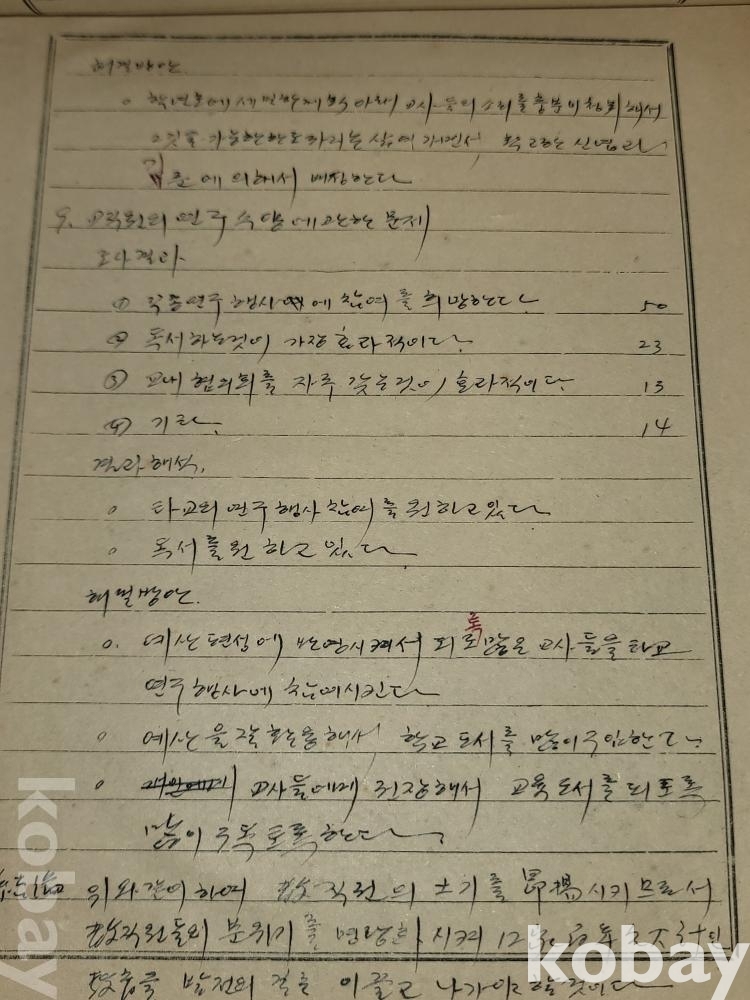 해결방안
○ 학년초에 세밀한 계획 아래 교사들의 소리를 충분히 참회해서
가능한 한도 자리는 심어 가면서, 학교장은 신념과
기준에 의해서 배정한다
9. 교직원의 연구 수양에 관하는 문제
조사결과
① 각종 연구행사에 참여를 희망한다. 50
② 독서하는것이 가장 효과적이다. 23
③ 교내 협의회를 자주 갖는것이 효과적이다. 13
④ 기타. 14
결과해석.
○ 타교의 연구행사 참여를 원하고 있다
○ 독서를 원하고 있다.
해결방안.
○. 예산편성에 반영시켜서 되도록 많은 교사들을 타교
연구행사에 참여시킨다
○ 예산을 잘 활용해서, 학교도서를 많이 구입한다.
○ 교사들에게 권장해서 교육도서를 되도록
많이 구독토록 한다.
위와같이 하여 敎직원의 사기를 昂揚시키므로서
敎직원들의 분위기를 명랑화 시켜 12年
敎育을 발전의 길로 이끌고 나가야 할것이다
kobay
kobay